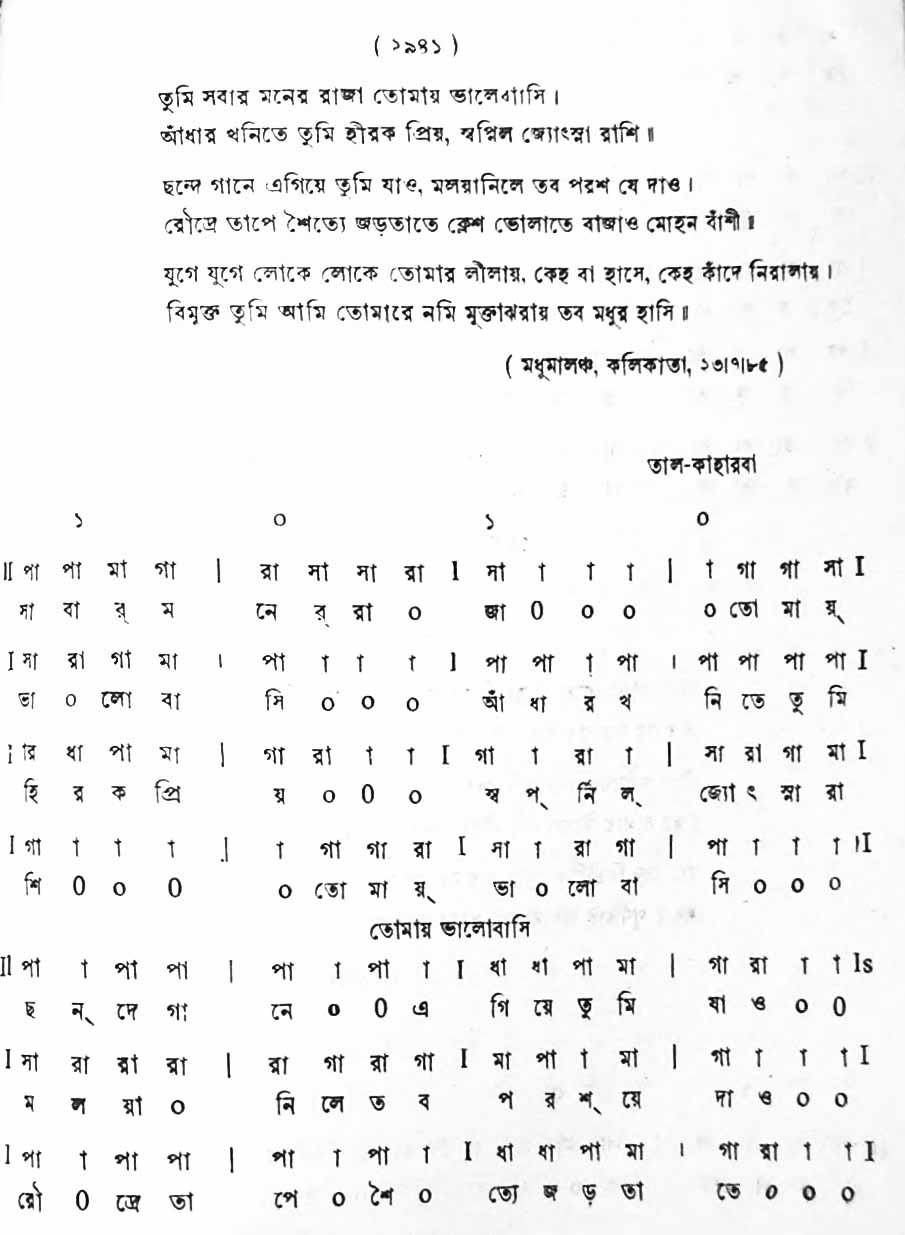 ( ১৯৪১ )
তুমি সবার মনের রাজা তোমায় ভালোবাসি ।
আঁধার খনিতে তুমি হীরক প্রিয়, স্বপ্নিল জ্যোৎস্না রাশি ॥
ছন্দে গানে এগিয়ে তুমি যাও, মলয়ানিলে তব পরশ যে দাও ।
রৌদ্রে তাপে শৈত্যে জড়তাতে ক্লেশ ভোলাতে বাজাও মোহন বাঁশী ॥
যুগে যুগে লোকে লোকে তোমার লীলায়, কেহ বা হাসে, কেহ কাঁদে নিরালায় ।
বিমুক্ত তুমি আমি তোমারে নমি মুক্তাঝরায় তব মধুর হাসি ॥
( মধুমালঞ্চ, কলিকাতা, ১৩/৭/৮৫ )
তাল-কাহারবা
১ ০ ১ ০
II পা পা মা গা | রা সা সা রা I সা া া া | া গা গা সা I
সা বা র্ ম নে র্ রা ০ জা ০ ০ ০ ০ তো মায়্
I সা রা গা মা । পা া া া I পা পা া পা । পা পা পা পা I
ভা ০ লো বা সি ০ ০ ০ আঁ ধা র খ নি তে তু মি
ধা পা মা | গা রা া া I গা া রা া | সা রা গা মা I
হি র ক প্রি য় ০ ০ ০ স্ব প্ নি ল্ জ্যো ৎ স্না রা
I গা া া া | া গা গা রা I সা া রা গা | পা া া া II
শি ০ ০ ০ ০ তো মা য়্ ভা ০ লো বা সি ০ ০ ০
তোমায় ভালোবাসি
II পা া পা পা | পা া পা া I ধা ধা পা মা | গা রা া া Is
ছ ন্ দে গা নে ০ ০ এ গি য়ে তু মি যা ও ০ ০
I সা রা রা রা | রা গা রা গা I মা পা া মা | গা া া া I
ম ল য়া ০ নি লে ত ব প র শ্ য়ে দা ও ০ ০
I পা া পা পা | পা া পা া I ধা ধা পা মা । গা রা া া I
রৌ ০ দ্রে তা পে ০ শৈ ০ ত্যে জ ড় তা তে ০ ০ ০